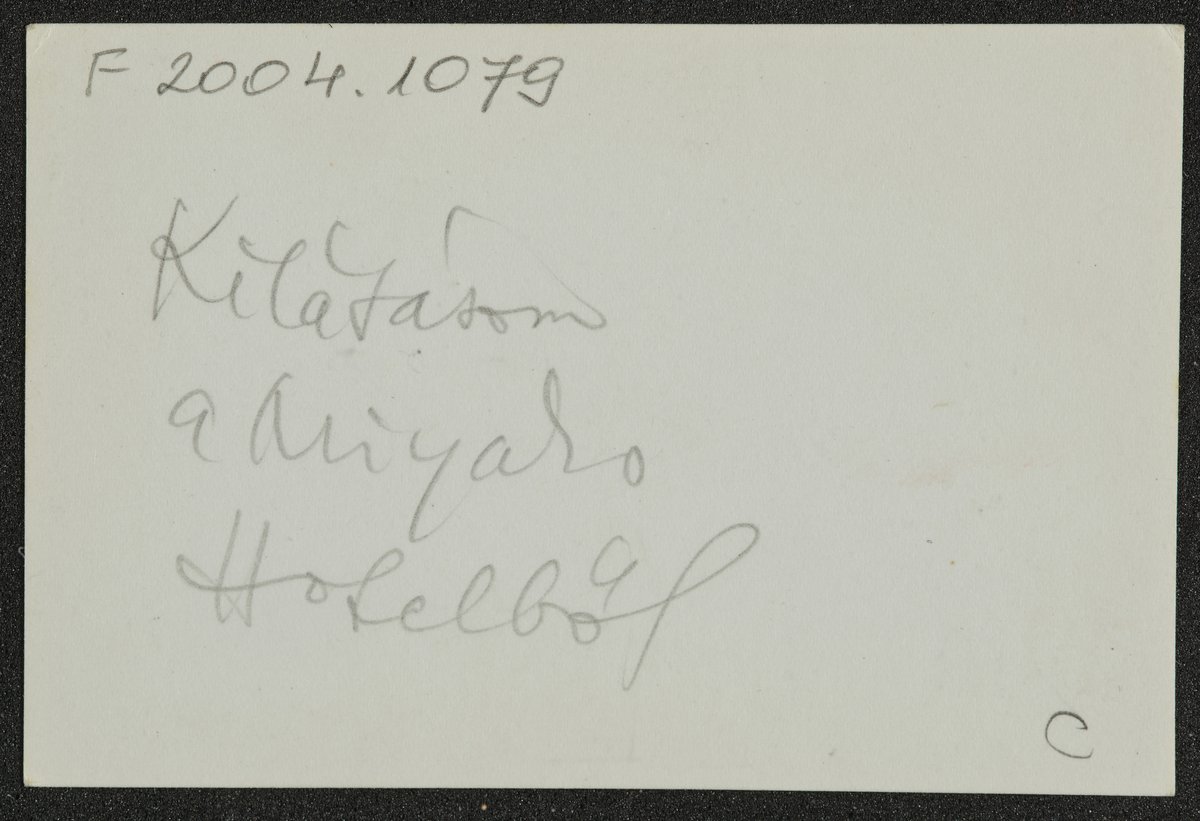 F 2004.1079
Kilátásom
a Miyako
Hotelből
C